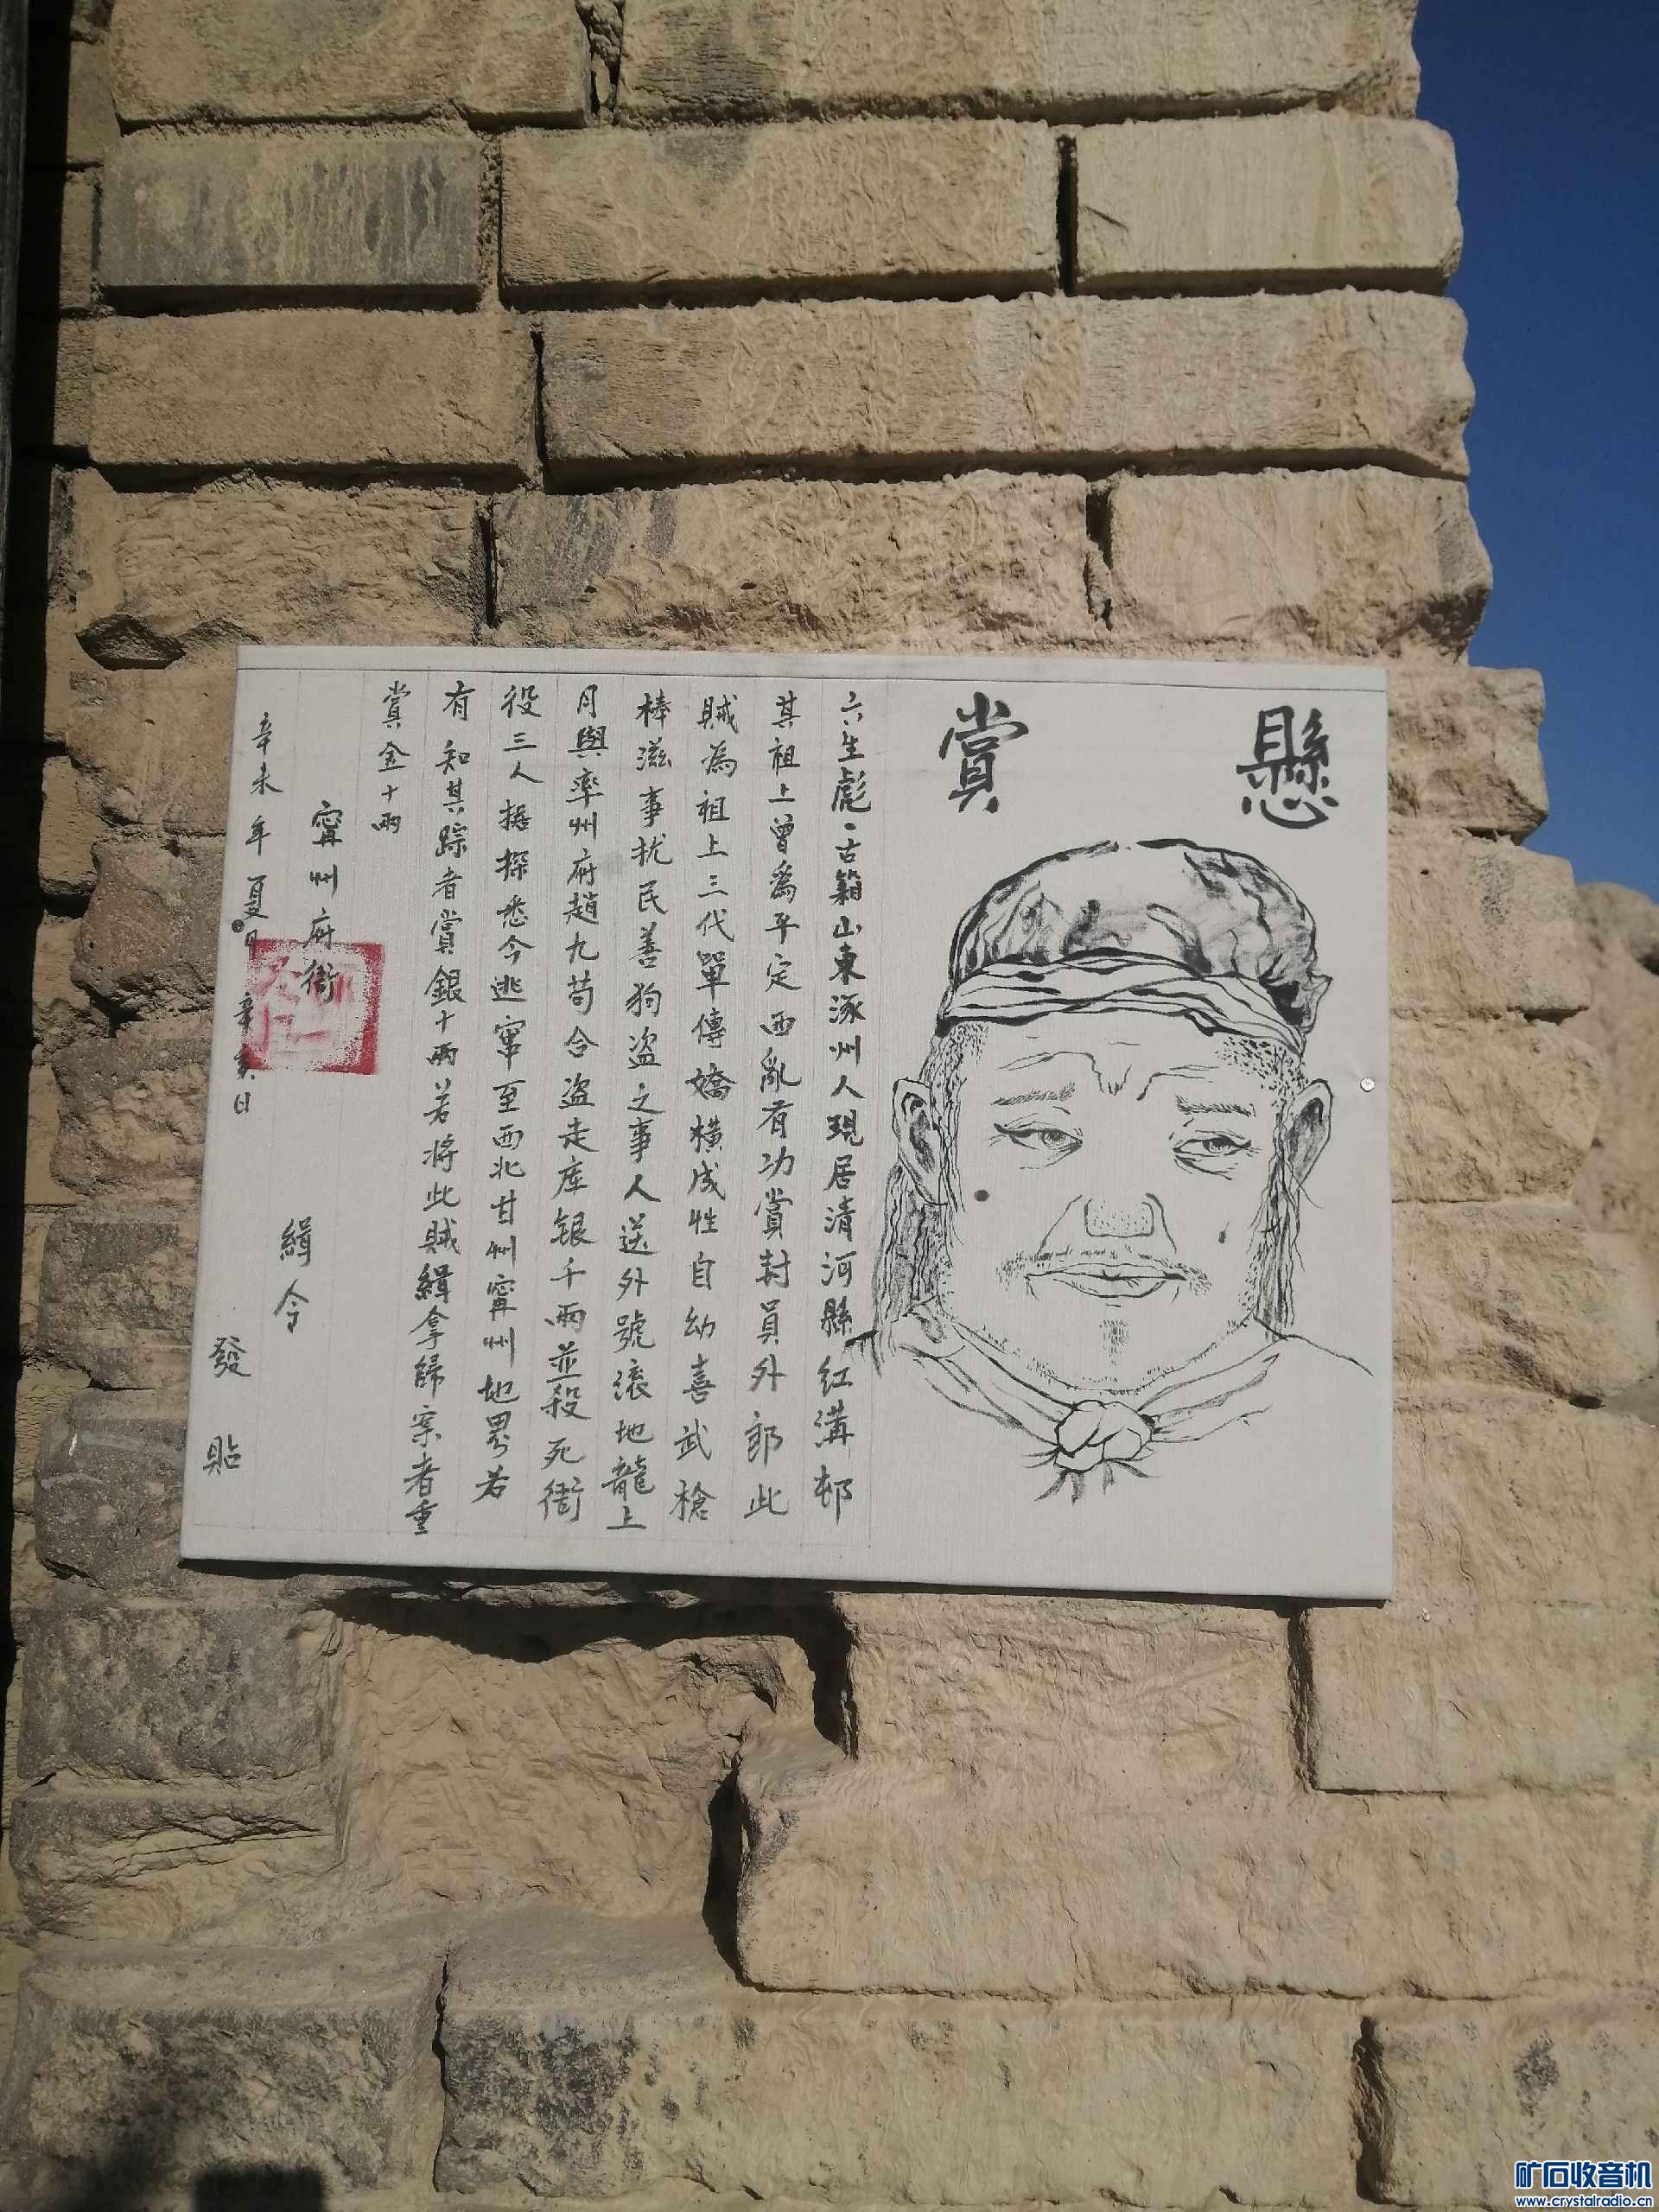 懸賞
六生彪、古籍山東涿州人現居清河縣红溝邨
其祖上曾為平定西亂有功賞封員外郎此
賊為祖上三代單傳嬌横成性自幼喜武槍
棒滋事扰民善狗盗之事人送外號滚地龍上
月與率州府趙九苟合盗走库银千兩並殺死衙
役三人據探悉今逃窜至西北甘州甯州地界若
有知其踪者賞銀十兩若将此賊緝拿歸案者重
賞金十兩
甯州府衙
緝令
辛未年夏月辛亥日
發貼
矿石收音机
www.crystalradio.cn